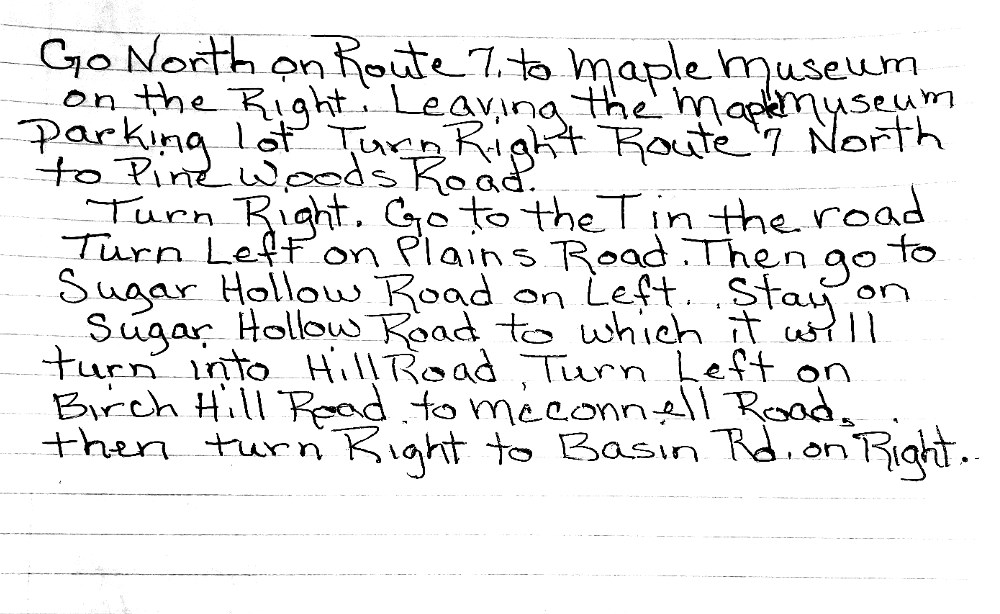 Go North on Route 7. to Maple Museum
on the Right. Leaving the Maple Museum
Parking lot Turn Right Route 7 North
to Pine Woods Road.
Turn Right. Go to the T in the road
Turn Left on Plains Road. Then go to
Sugar Hollow Road on Left. Stay on
Sugar Hollow Road to which it will
turn into Hill Road, Turn Left on
Birch Hill Road to McConnell Road,
then turn Right to Basin Rd. on Right.